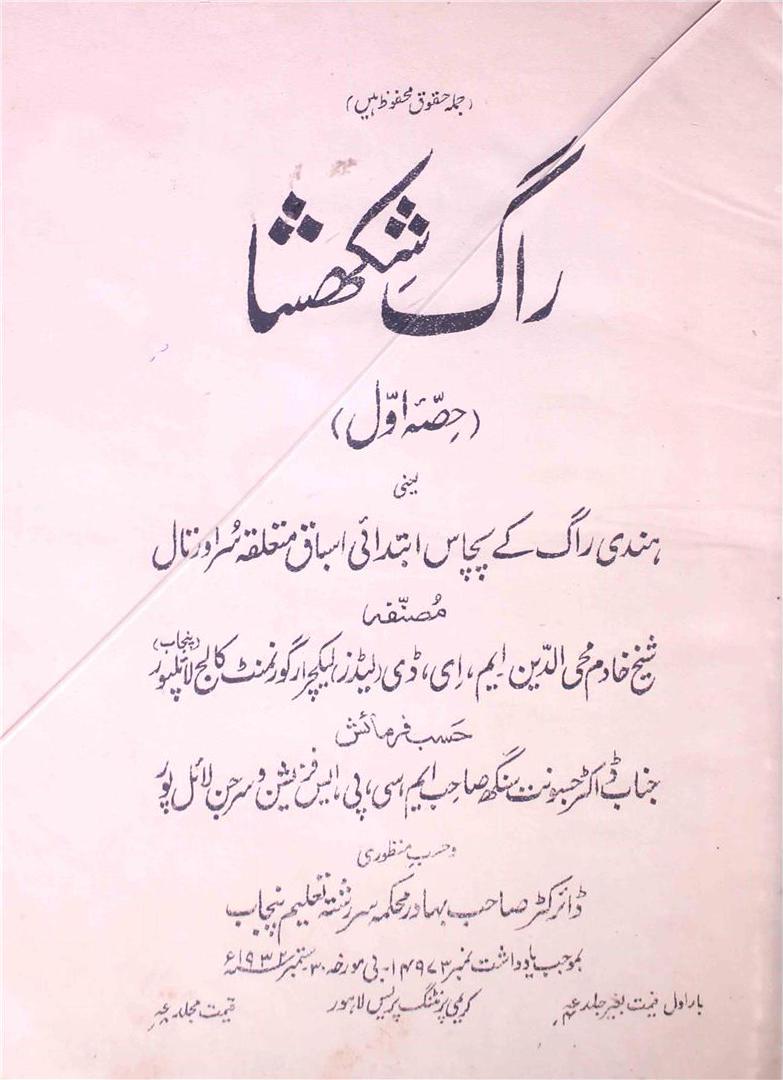 (جملہ حقوق محفوظ ہیں)
راگ شِکھشا
(حِصّہ اوّل)
یعنی
ہندی راگ کے پچاس ابتدائی اسباق متعلقہ سُر اور تال
مُصنّفہ
شیخ خادم محی الدّین ایم، اِی، ڈی (لیڈز) لیکچرار گورنمنٹ کالج لائلپور (پنجاب)
حَسب فرمائش
جناب ڈاکٹر جسونت سنگھ صاحب ایم، سی، پی، ایس فزیشن و سرجن لائل پور
وحسبِ منظوری
ڈائرکٹر صاحب بہادر محکمہ سررشتہ تعلیم پنجاب
بموجب یادداشت نمبر ۱۴۹۷۳-بی مورخہ ۳۰-ستمبر ۱۹۳۲ء
بار اول قیمت بغیر جلد کریمی پرنٹنگ پریس لاہور قیمت مجلد